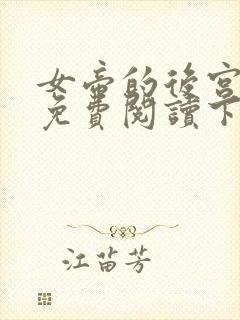 女帝的後宮
免費閱讀下
江苗芳